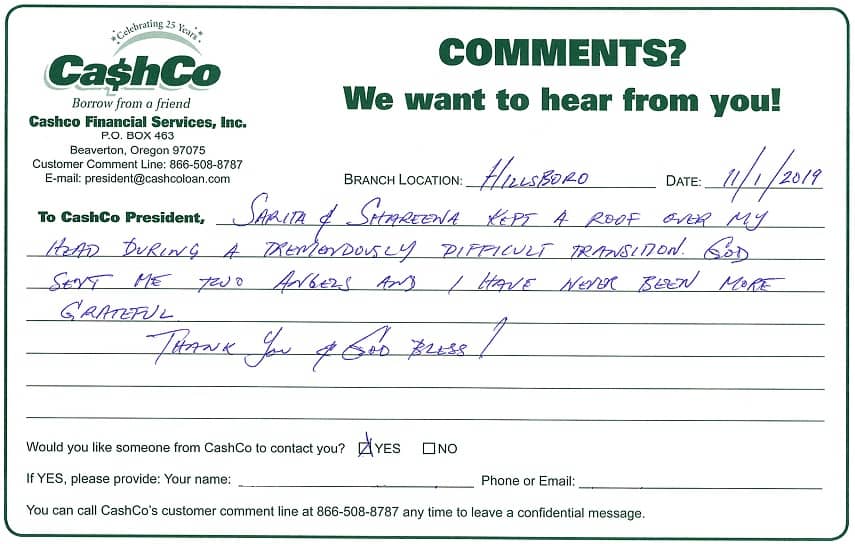 Celebrating 25 Years
Ca$hCo
Borrow from a friend
Cashco Financial Services, Inc.
P.O. BOX 463
Beaverton, Oregon 97075
Customer Comment Line: 866-508-8787
E-mail: president@cashcoloan.com
COMMENTS?
We want to hear from you!
BRANCH LOCATION: HILLSBORO DATE: 11/1/2019
To CashCo President, SARITA & SHAREENA KEPT A ROOF OVER MY
HEAD DURING A TREMENDOUSLY DIFFICULT TRANSITION. GOD
SENT ME TWO ANGELS AND I HAVE NEVER BEEN MORE
GRATEFUL.
THANK YOU & GOD BLESS!
Would you like someone from CashCo to contact you? YES NO
If YES, please provide: Your name: Phone or Email:
You can call CashCo's customer comment line at 866-508-8787 any time to leave a confidential message.